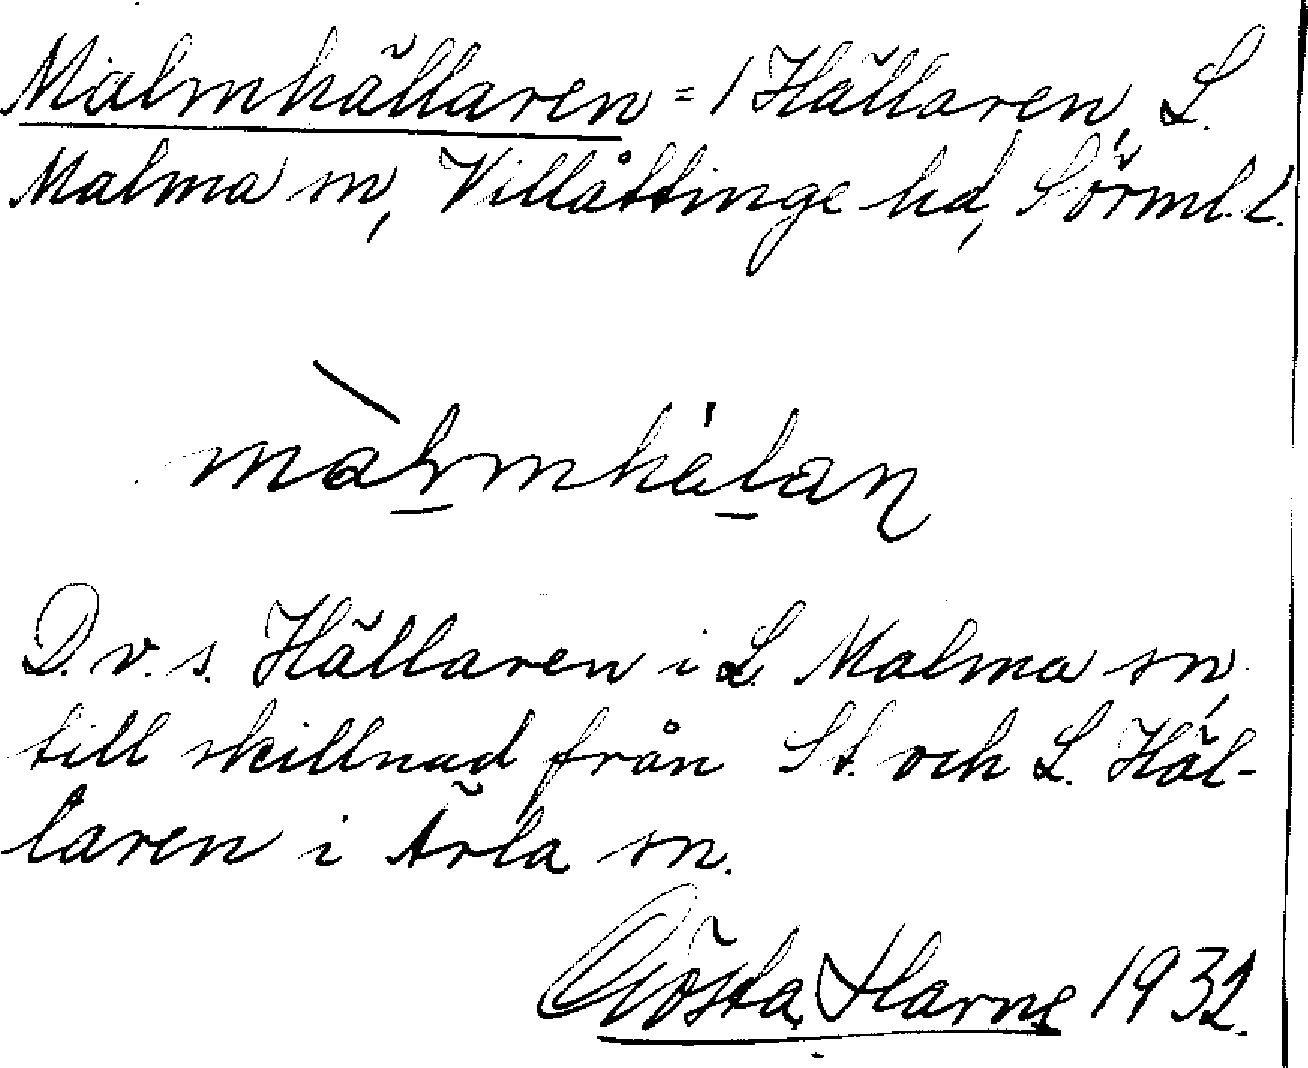 Malmhällaren = / Hällaren, L.
Malma sn, Villåttinge hd, Sörml. l.
màlmhälan
D.v.s. Hällaren i L. Malma sn,
till skillnad från St. och L. Häl-
laren i Ärla sn.
Gösta Harne 1932.